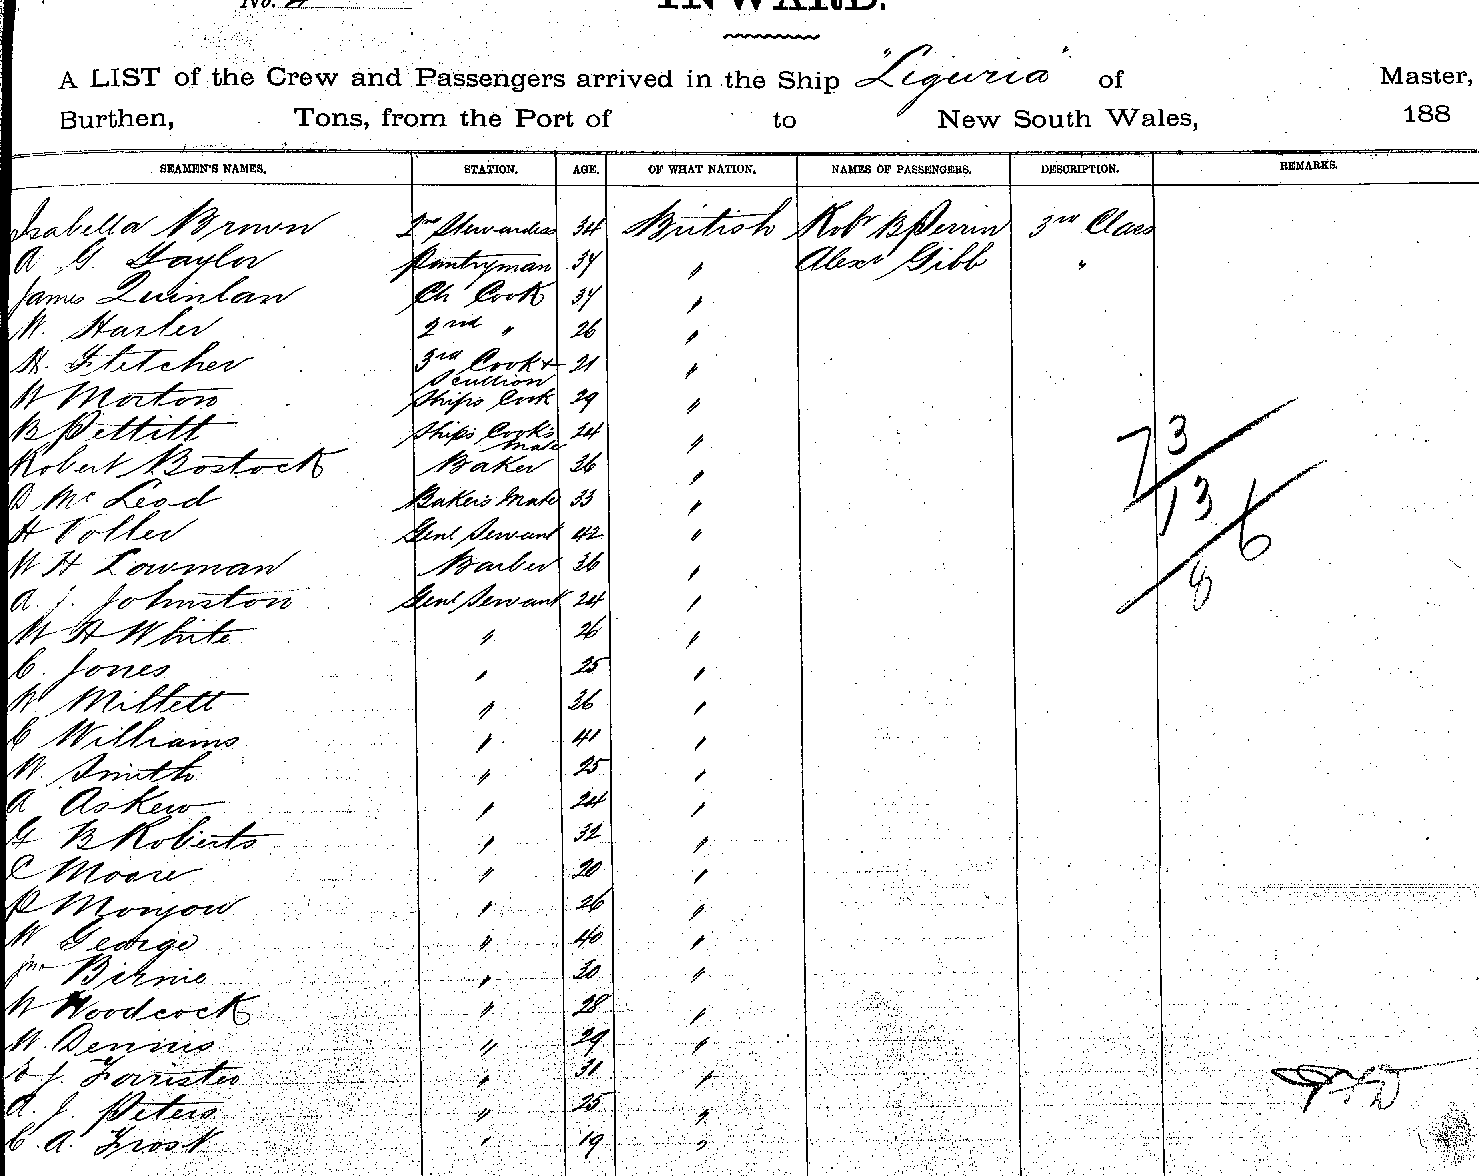 No. 4
INWARD.
A LIST of the Crew and Passengers arrived in the Ship "Liguria" of Master,
Burthen, Tons, from the Port of to New South Wales, 188
SEAMEN'S NAMES. STATION. AGE. OF WHAT NATION. NAMES OF PASSENGERS. DESCRIPTION. REMARKS.
Isabella Brown 2nd Stewardess 34 British Robt B Perrin 3rd Class
A G. Taylor Pantryman 34 " Alexr Gibb "
James Quinlan Ch Cook 34 "
W. Hasler 2nd " 26 "
H. Fletcher 3rd Cook & Scullion 21 "
W Morton Ships Cook 29 "
B Pettitt Ships Cook's Mate 24 "
Robert Bostock Baker 26 "
D McLeod Baker's Mate 33 "
H Voller Genl Servant 42 "
W H Lowman Barber 36 "
A. J. Johnston Genl Servant 24 "
W H White " 26 "
C. Jones " 25 "
W Millett " 26 "
C Williams " 41 "
W. Smith " 25 "
A Askew " 24 "
G B Roberts " 32 "
C Moore " 20 "
P Monjow " 26 "
W George " 40 "
Jno Birnie " 30 "
W Woodcock " 28 "
W. Dennis " 29 "
J. Forrister " 31 "
A. J. Peters " 25 "
C. A. Frost " 19 "
73
13
6
8